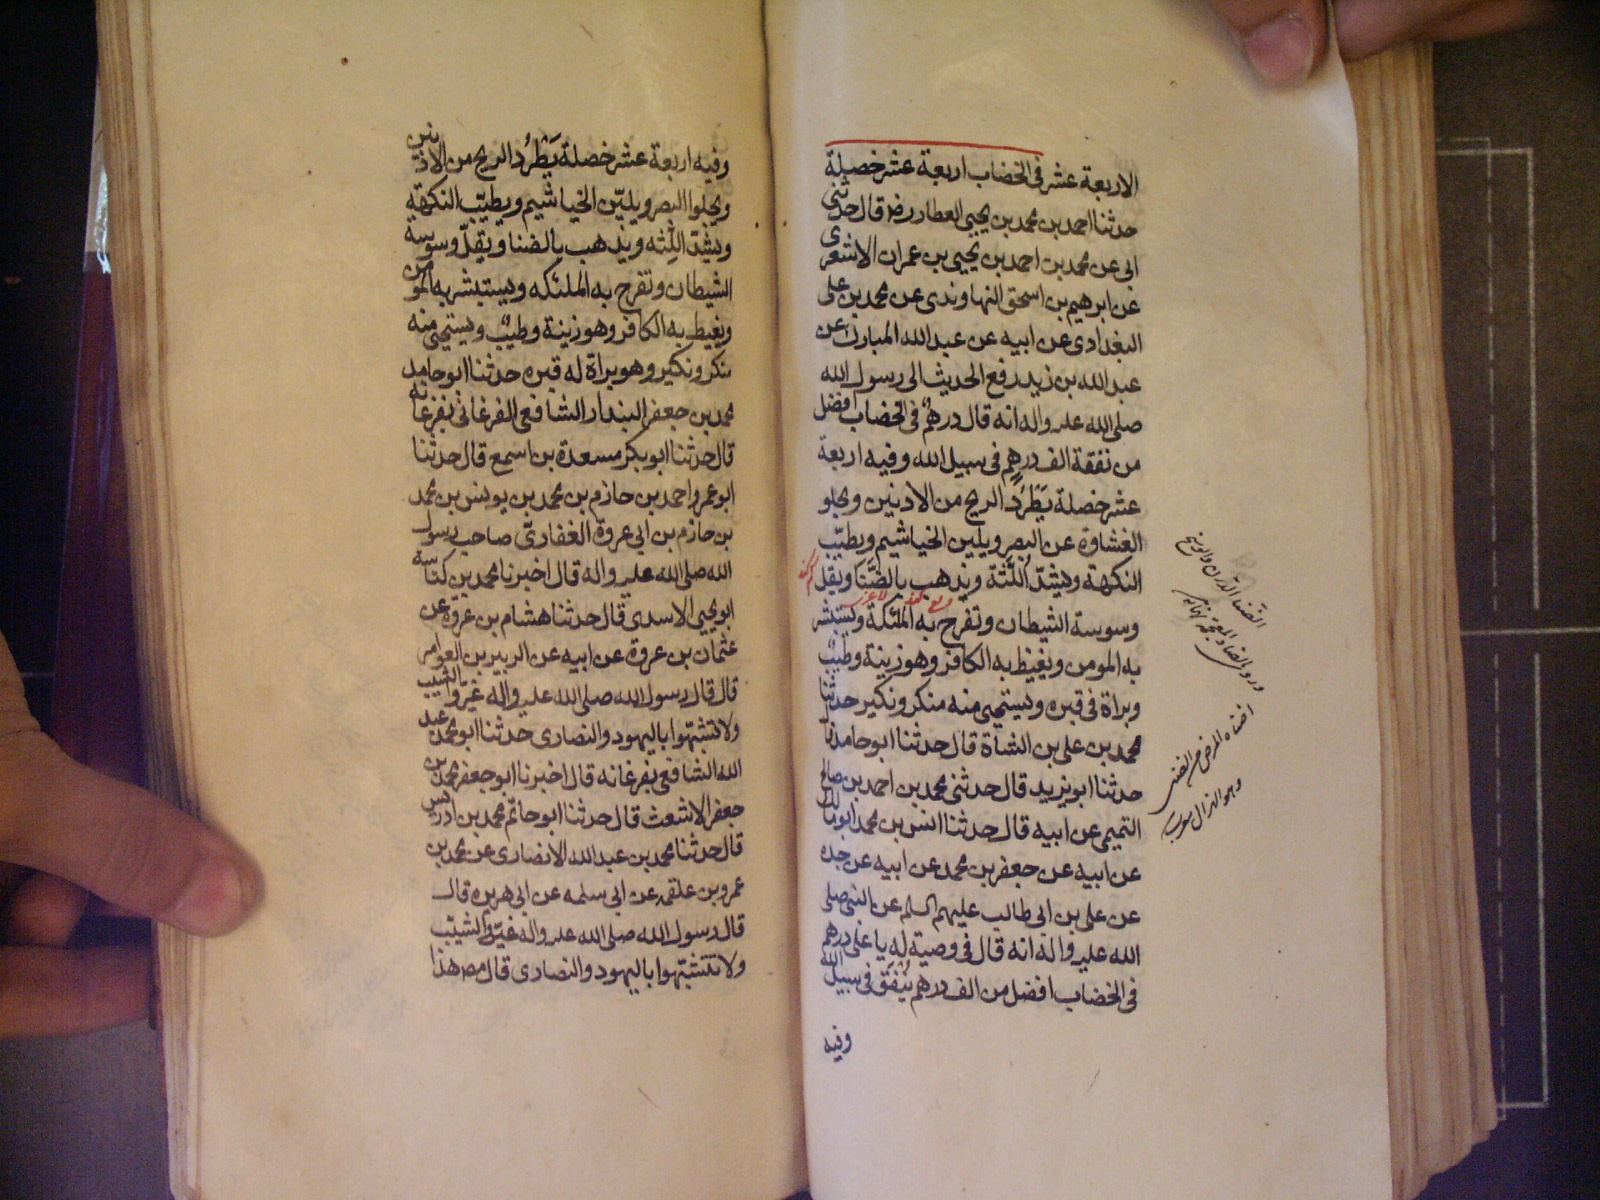 الاربعة عشر فى الخضاب اربعة عشر خصلة
حدثنا احمد بن محمد بن يحيى العطار رض قال حدثنى
ابى عن محمد بن احمد بن يحيى بن عمران الاشعرى
عن ابرهيم بن اسحق النهاوندى عن محمد بن على
البغدادى عن ابيه عن عبد الله المبارك عن
عبد الله بن زيد رفع الحديث الى رسول الله
صلى الله عليه واله انه قال درهم فى الخضاب افضل
من نفقة الف درهم فى سبيل الله وفيه اربعة
عشر خصلة يَطْرُد الريح من الاذنين ويجلو
الغشاوة عن البصر ويلين الخياشيم ويطيّب
النكهة ويشدّ اللثة ويذهب بالضَّنَا ويقل
وسوسة الشيطان وتفرح به الملئكة ويستبشر
به المومن ويغيظ به الكافر وهو زينة وطيبٌ
وبراة فى قبره ويستحيى منه منكر ونكير حدثنا
محمد بن على بن الشاة قال حدثنا ابو حامد قال
حدثنا ابو يزيد قال حدثنى محمد بن احمد بن صالح
التميمى عن ابيه قال حدثنا انس بن محمد ابو مالك
عن ابيه عن جعفر بن محمد عن ابيه عن جده
عن على بن ابى طالب عليهم السلم عن النبى صلى
الله عليه واله انه قال فى وصيته له يا على درهم
فى الخضاب افضل من الف درهم يُنْفَق فى سبيل الله
وفيه
وفيه اربعة عشر خصلة يَطْرُد الريح من الاذنين
ويجلوا البصر ويليّن الخياشيم ويطيّب النكهة
ويشدّ اللِّثه ويذهب بالضنا ويقلّ وسوسة
الشيطان وتفرح به الملئكه ويستبشر به المومن
ويغيظ به الكافر وهو زينة وطيبٌ ويستحيى منه
منكر ونكير وهو براة له قبره حدثنا ابو حامد
محمد بن جعفر البندار الشافعى الفرغانى بفرغانه
قال حدثنا ابو بكر مسعدة بن اسمع قال حدثنا
ابو عمرو احمد بن حازم بن محمد بن يونس بن محمد
بن حازم بن ابى عروة الغفارىّ صاحب رسول
الله صلى الله عليه واله قال اخبرنا محمد بن كناسه
ابو يحيى الاسدى قال حدثنا هشام بن عروة عن
عثمان بن عروة عن ابيه عن الزبير بن العوام
قال قال رسول الله صلى الله عليه واله غيّروا الشيب
ولا تشبّهوا باليهود والنصارى حدثنا ابو محمد عبد
الله الشافعى بفرغانه قال اخبرنا ابو جعفر محمد بن
جعفر الاشعث قال حدثنا ابو حاتم محمد بن ادريس
قال حدثنا محمد بن عبد الله الانصارى عن محمد بن
عمرو بن علقمه عن ابى سلمه عن ابى هريره قال
قال رسول الله صلى الله عليه واله غيّروا الشيب
ولا تتشبّهوا باليهود والنصارى قال مص هذا